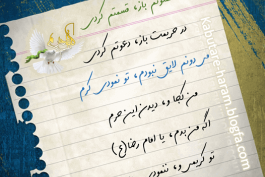 بازم، قسمتم کردی
در حریمت باز، دعوتم کردی
می دونم لایق نبودم، تو نعودی کرم
من کجا و، دیدن این حرم
اگه من بدم، یا امام رضا(ع)
تو کریمی و،
haram.blogfa.com